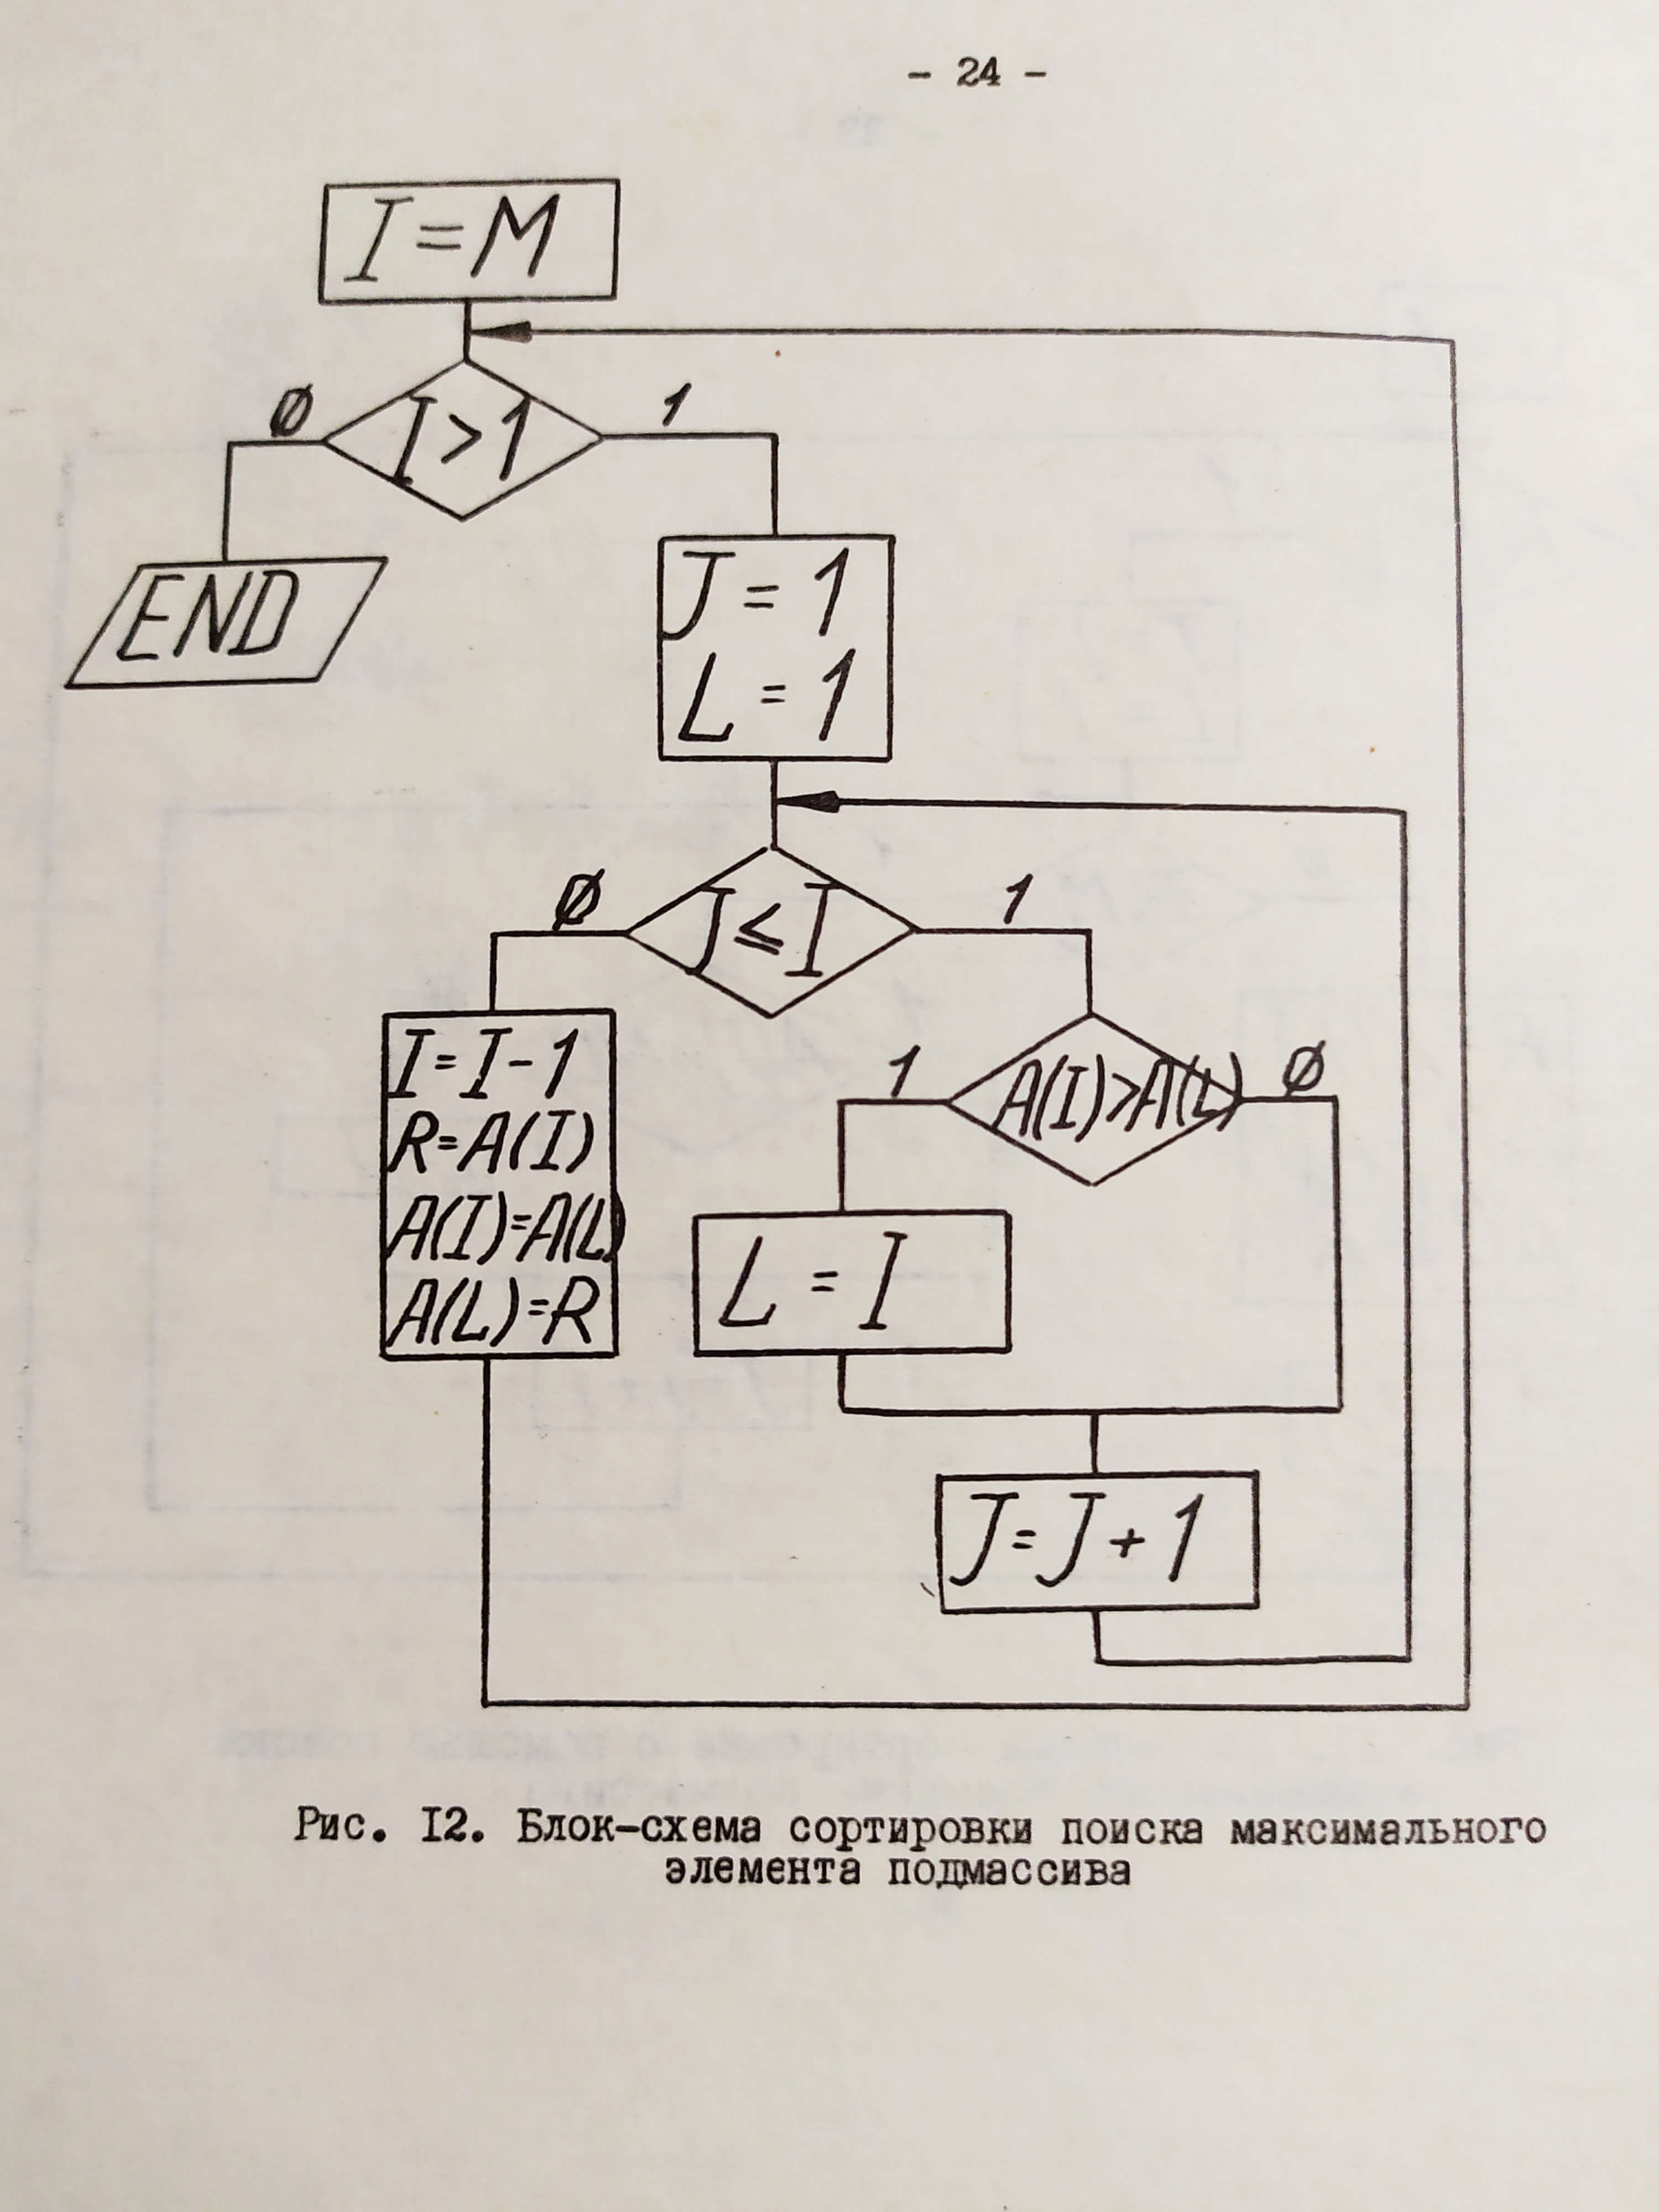 - 24 -
I = M
Ø
I > 1
1
END
J = 1
L = 1
Ø
J ≤ I
1
I = I - 1
R = A(I)
A(I) = A(L)
A(L) = R
1
A(I) > A(L)
Ø
L = I
J = J + 1
Рис. I2. Блок-схема сортировки поиска максимального
элемента подмассива